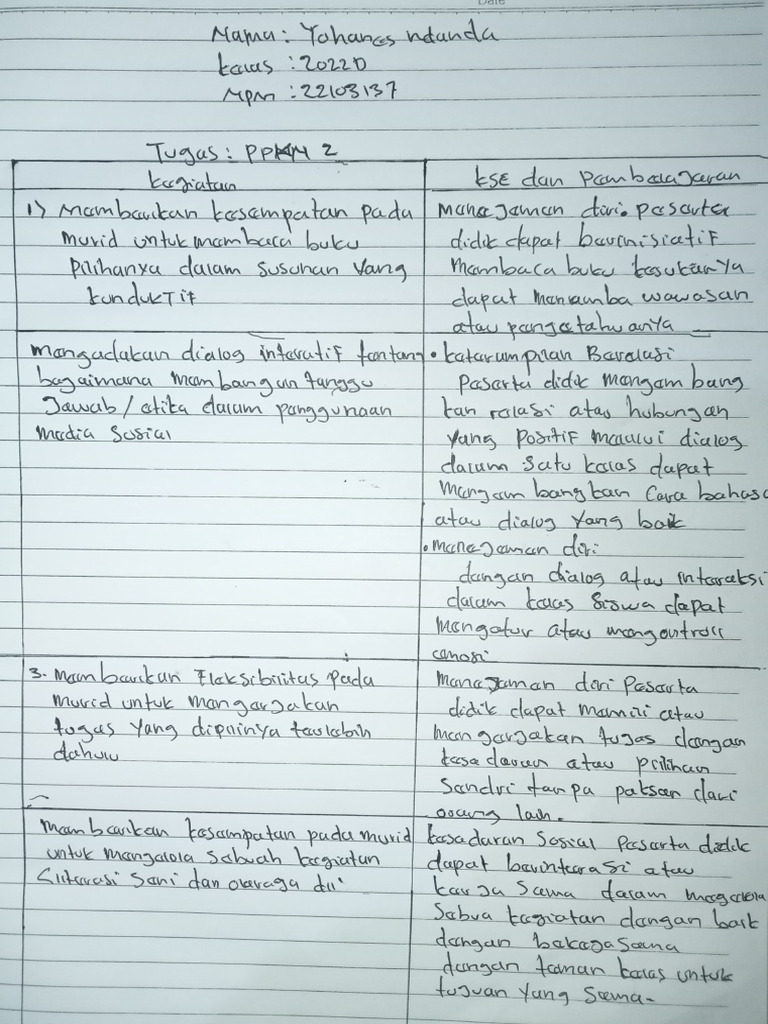 Date
Nama : Yohanes ndanda
kelas : 2022D
NPM : 22103137
Tugas : PPKN 2
kegiatan
1) Memberikan kesempatan pada
murid untuk membaca buku
pilihanya dalam susunan yang
kondukTif
KSE dan pembelajaran
manajemen diri. peserta
didik dapat berinisiatif
membaca buku kesukanya
dapat menamba wawasan
atau pengetahuanya
mengadakan dialog interatif tentang
bagaimana membangun tanggu
Jawab / etika dalam penggunaan
media sosial
• keterampilan Berelasi
peserta didik mengembang
kan relasi atau hubungan
yang positif melalui dialog
dalam satu kelas dapat
mengembangkan cara bahasa
atau dialog yang baik
• manajemen diri
dengan dialog atau interaksi
dalam kelas siswa dapat
mengatur atau mengontroll
emosi
3. Memberikan Fleksibilitas pada
murid untuk mengerjakan
tugas yang dipilinya terlebih
dahulu
manajemen diri peserta
didik dapat memili atau
mengerjakan tugas dengan
kesadaran atau pilihan
sendiri tanpa paksan dari
orang lain.
memberikan kesempatan pada murid
untuk mengelola sebuah kegiatan
literasi seni dan olaraga dll
kesadaran sosial peserta didik
dapat berinterasi atau
kerja sama dalam megelola
sebua kegiatan dengan baik
dengan bekejasama
dengan teman kelas untuk
tujuan yang sama.